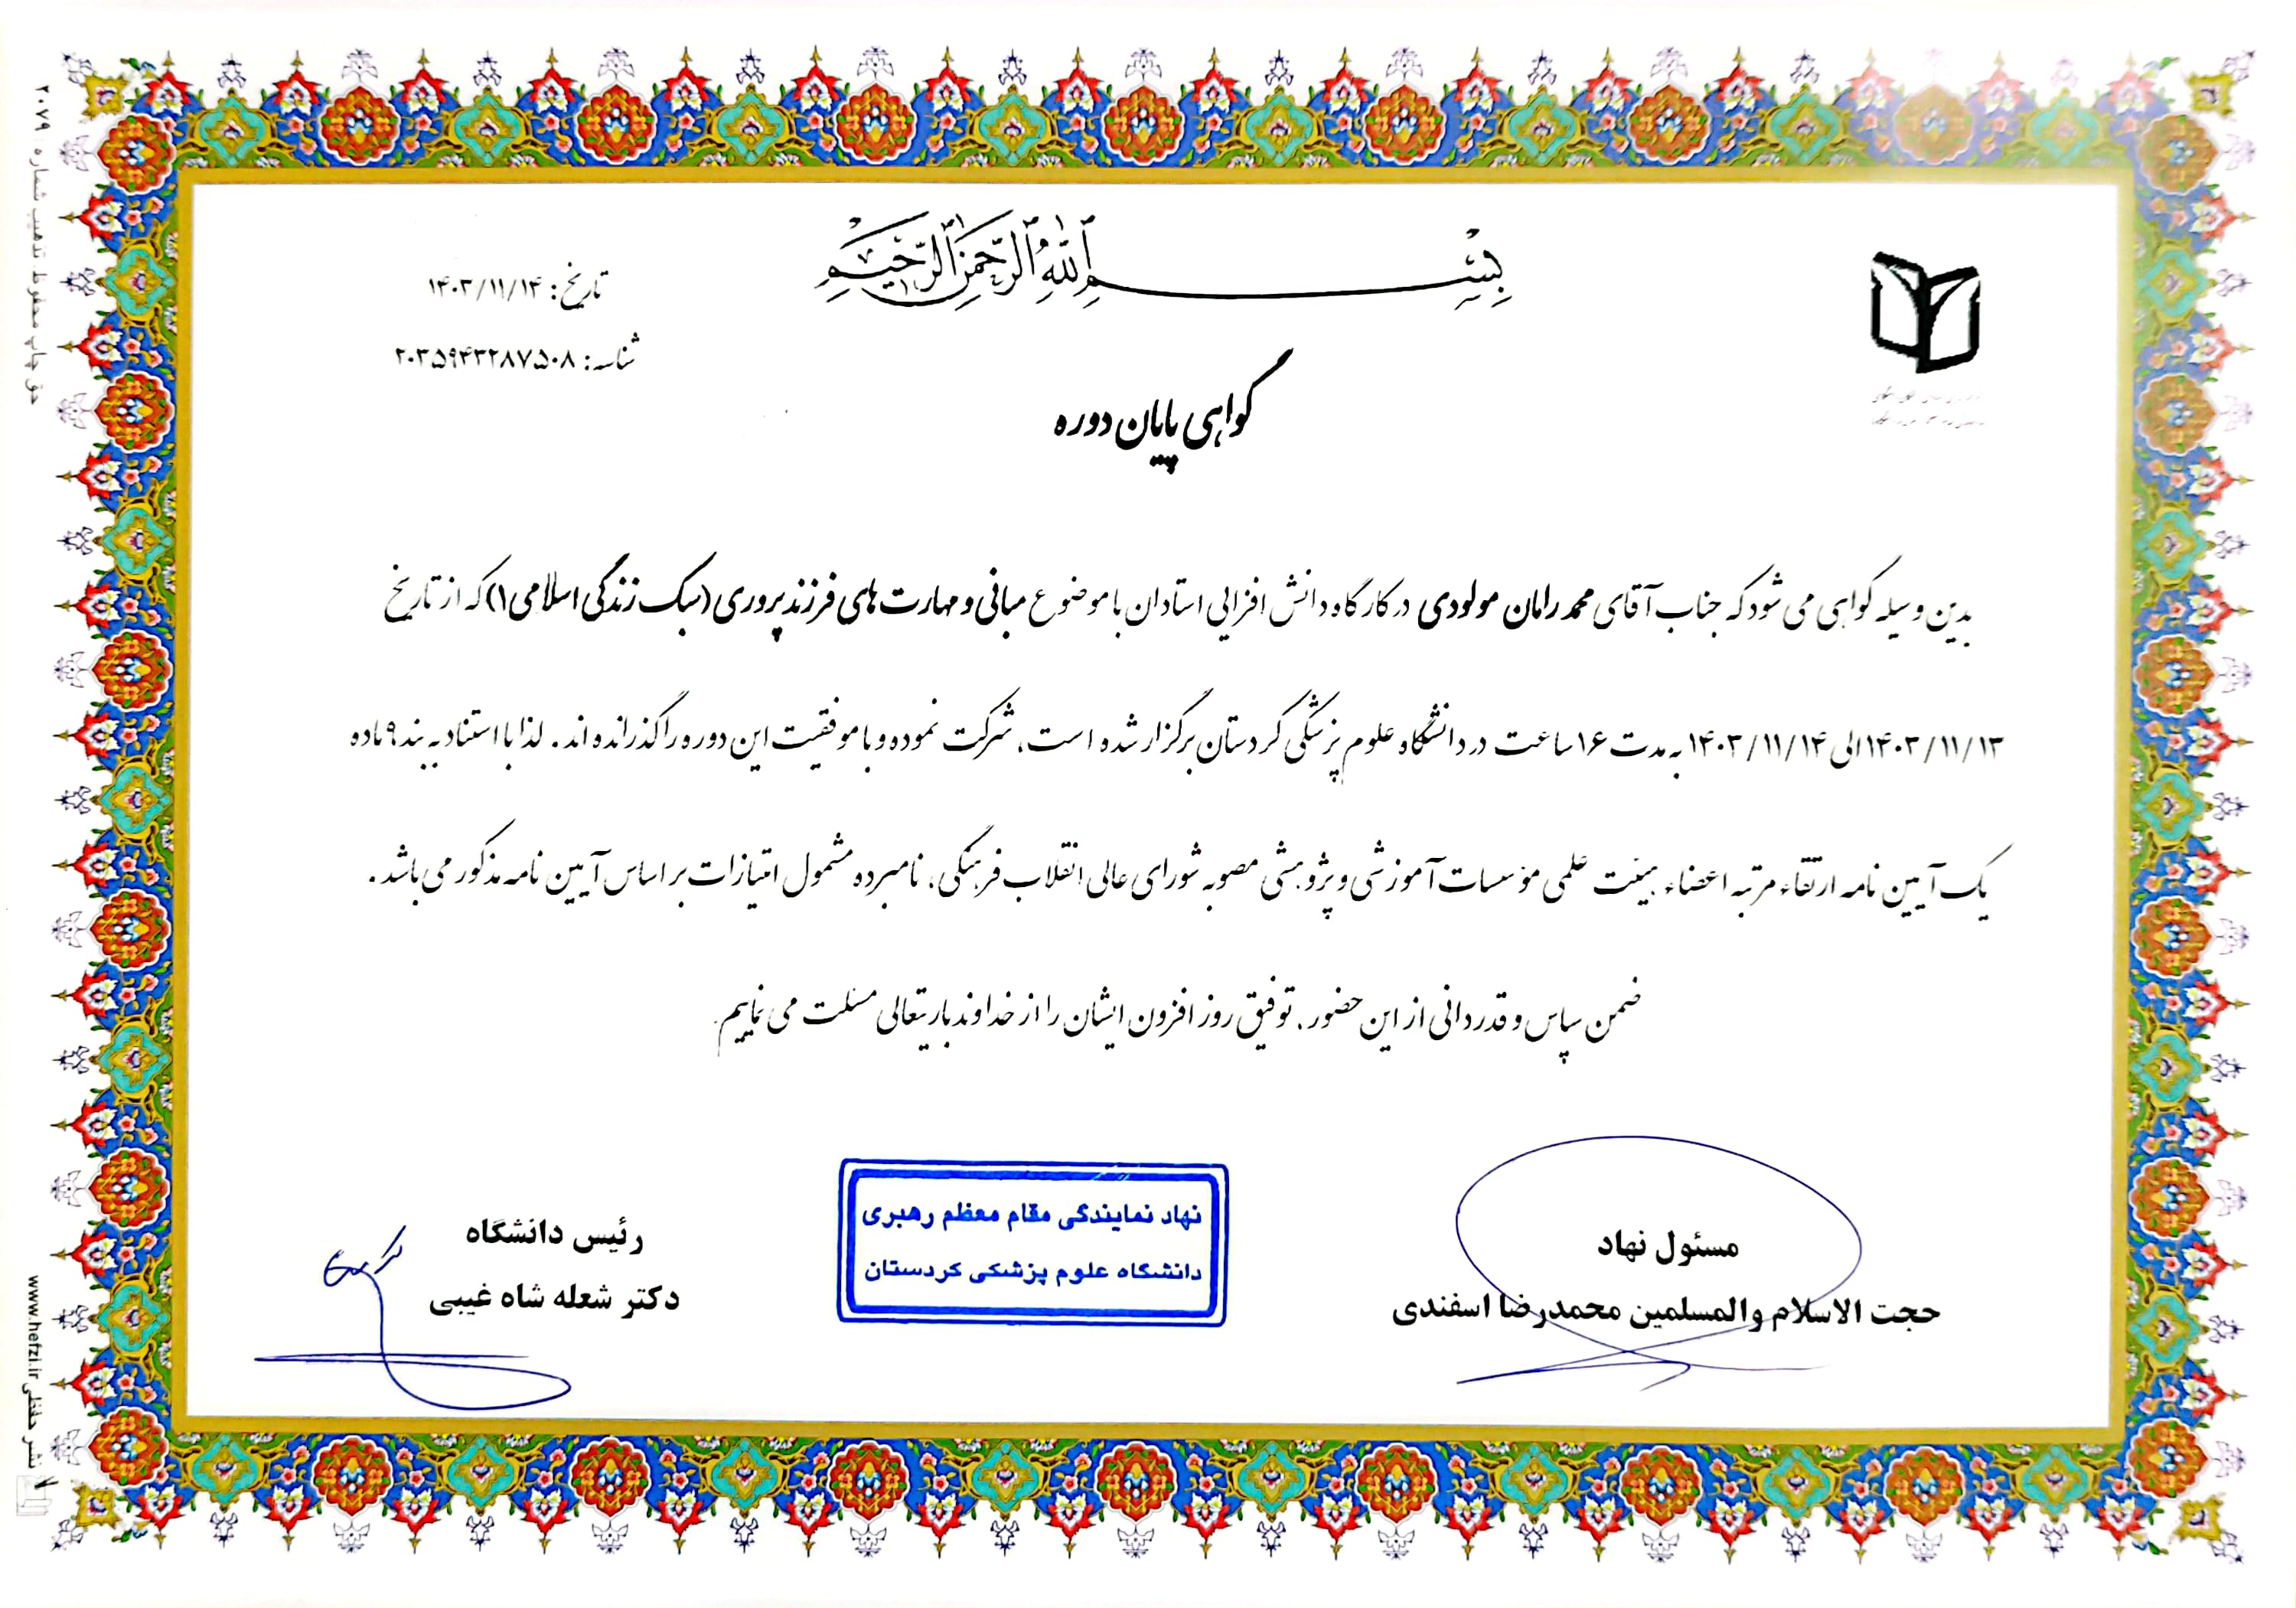 بسم الله الرحمن الرحیم
تاریخ: ۱۴۰۳/۱۱/۱۴
شناسه: ۲۰۳۵۹۴۳۲۸۷۵۰۸
گواهی پایان دوره
بدین وسیله گواهی می شود که جناب آقای محمد رامان مولودی در کارگاه دانش افزایی استادان با موضوع مبانی و مهارت های فرزند پروری (سبک زندگی اسلامی ۱) که از تاریخ
۱۴۰۳/۱۱/۱۳ الی ۱۴۰۳/۱۱/۱۴ به مدت ۱۶ ساعت در دانشگاه علوم پزشکی کردستان برگزار شده است، شرکت نموده و با موفقیت این دوره را گذرانده اند. لذا با استناد به بند ۹ ماده
یک آیین نامه ارتقاء مرتبه اعضاء هیئت علمی مؤسسات آموزشی و پژوهشی مصوبه شورای عالی انقلاب فرهنگی، نامبرده مشمول امتیازات بر اساس آیین نامه مذکور می باشد.
ضمن سپاس و قدردانی از این حضور، توفیق روز افزون ایشان را از خداوند باریتعالی مسئلت می نماییم.
مسئول نهاد
حجت الاسلام والمسلمین محمدرضا اسفندی
نهاد نمایندگی مقام معظم رهبری
دانشگاه علوم پزشکی کردستان
رئیس دانشگاه
دکتر شعله شاه غیبی
حق چاپ محفوظ، تذهیب شماره ۲۰۷۹
نشر حفظی www.hefzi.ir